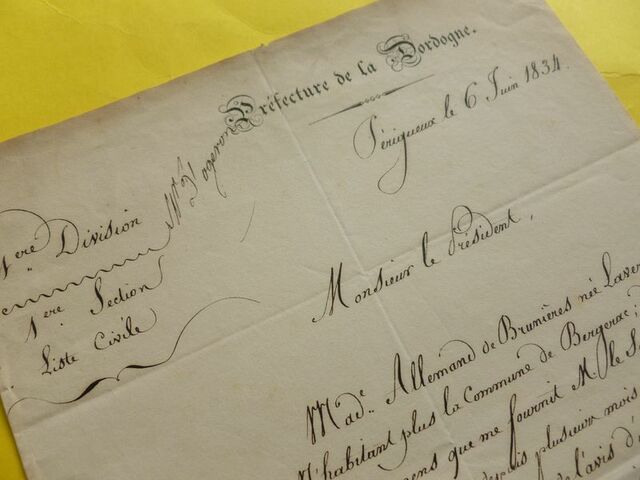 Préfecture de la Dordogne.
Périgueux le 6 Juin 1834.
1ere Division
1ere Section
Liste Civile
Monsieur le Président,
Made. Allemand de Brunières née Laver
N'habitant plus la Commune de Bergerac;
ens que me fournit M. le S
depuis plusieurs mois
de l'avis d'